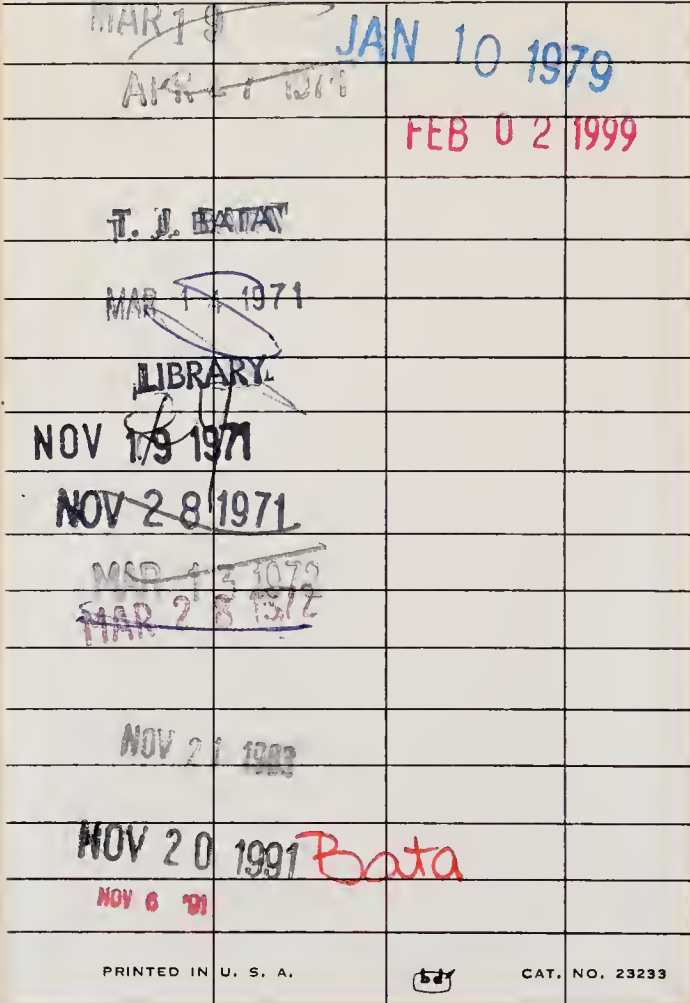 MAR 19
JAN 10 1979
FEB 02 1999
T. J. BATA
MAR 1 1971
LIBRARY
NOV 19 1971
NOV 28 1971
MAR 13 1972
MAR 28 1972
NOV 21 1983
NOV 20 1991 Bata
NOV 6 '91
PRINTED IN U. S. A. bd CAT. NO. 23233